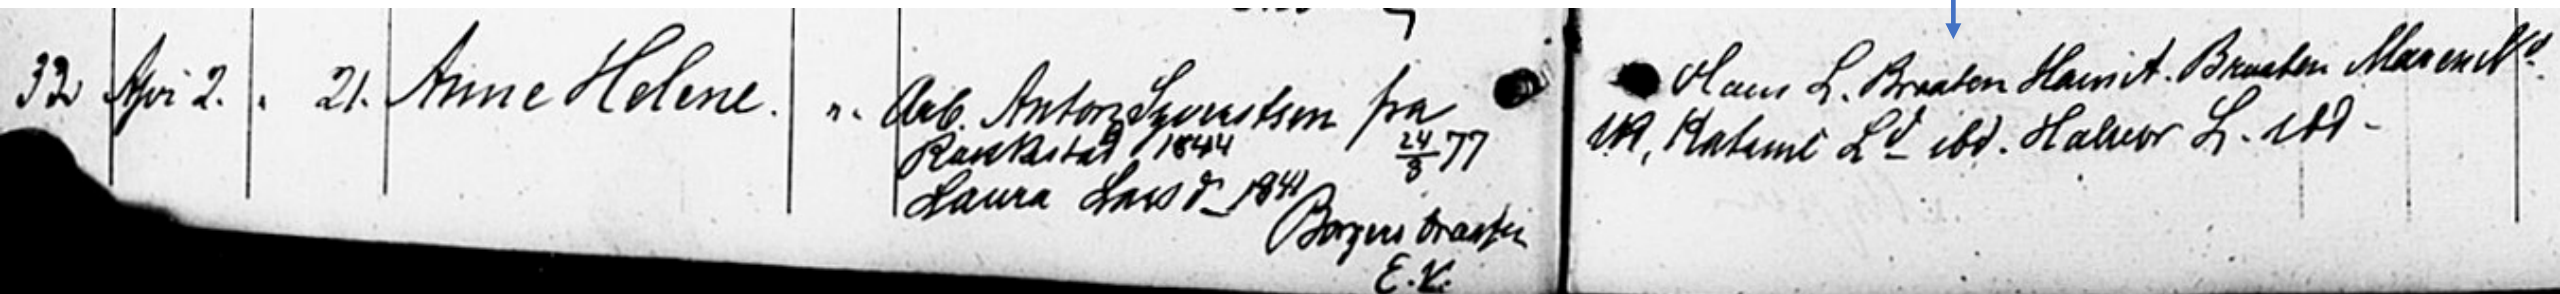 33. Apri 2. " 21. Anne Helene. ". Arb. Anton Syverstsen fra
Raukstad 1844 24/3 77
Laura Larsd. 1841
Borgens braaten
E.K.
Hans L. Braaten Hans A. Braaten Maren
Katarine Ld. ibd. Halvor L. ibd.